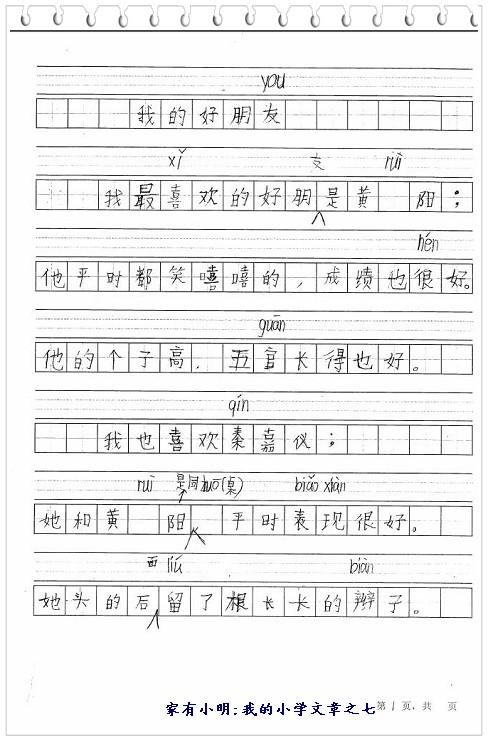 yǒu
我的好朋友
xǐ 友 ruì
我最喜欢的好朋是黄 阳；
hěn
他平时都笑嘻嘻的，成绩也很好。
guān
他的个子高，五官长得也好。
qín
我也喜欢秦嘉仪；
ruì 是同zuō(桌) biǎo xiàn
她和黄 阳 平时表现很好。
面 liú biàn
她头的后留了根长长的辫子。
家有小明:我的小学文章之七
第1页，共 页